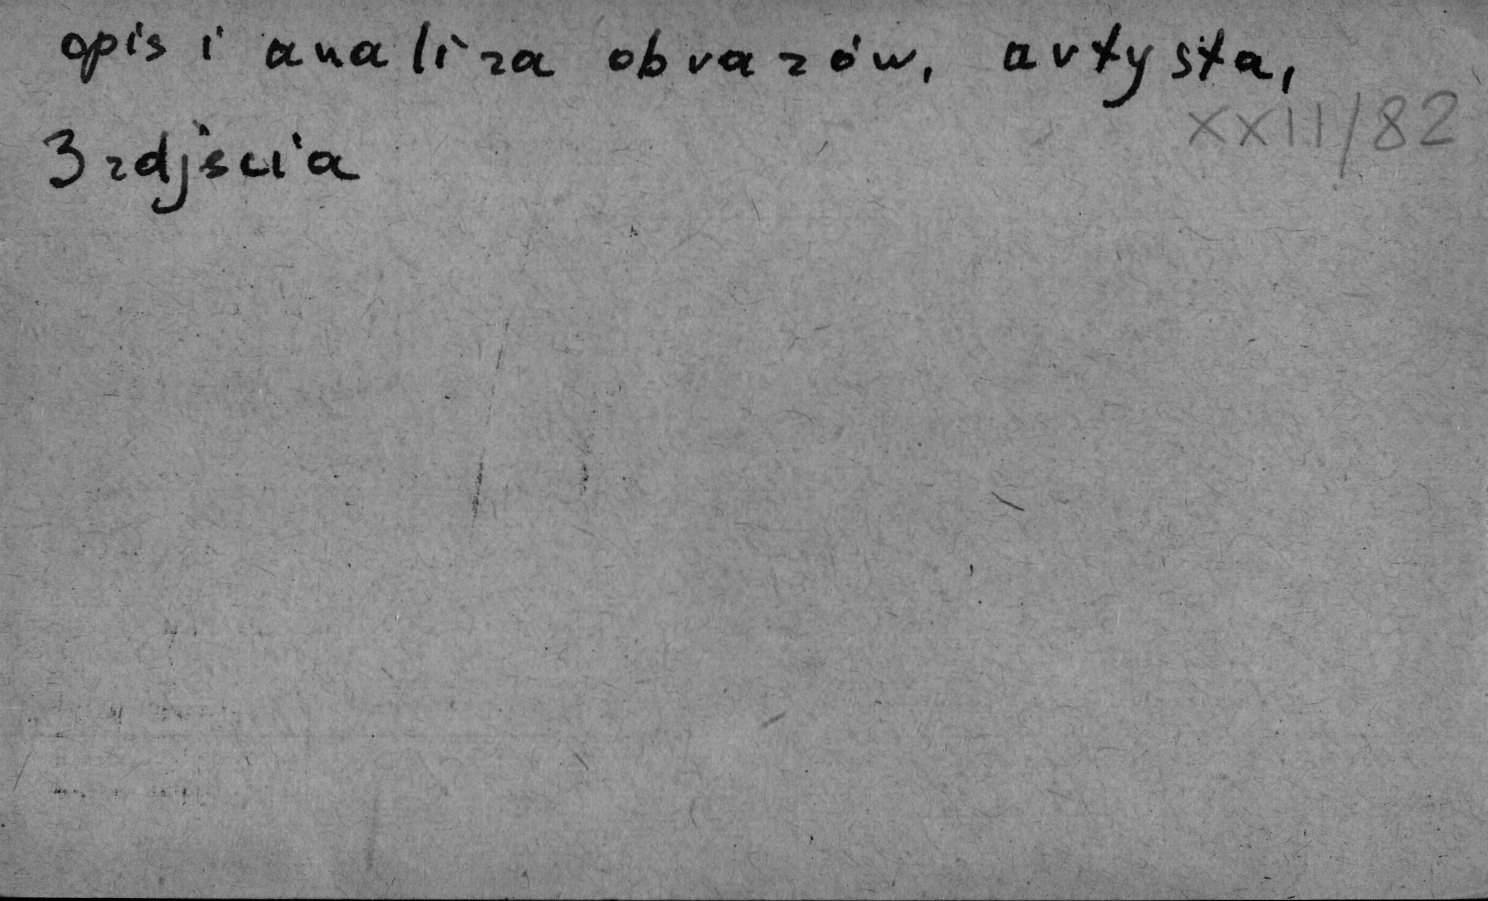 opis i analiza obrazów, artysta,
XXII/82
3 zdjścia